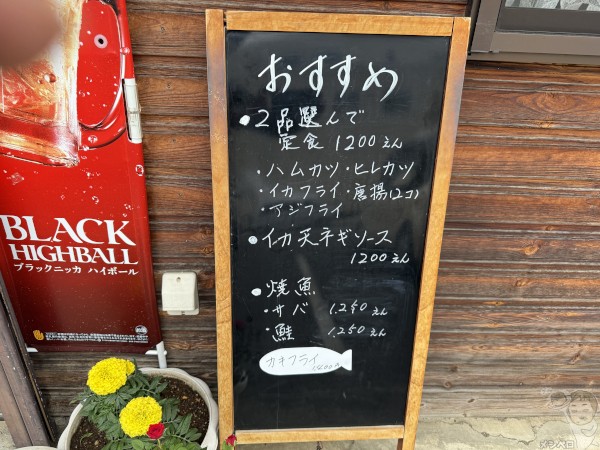 おすすめ
・2品選んで
定食 1200えん
・ハムカツ・ヒレカツ
・イカフライ・唐揚(2コ)
・アジフライ
・イカ天ネギソース
1200えん
・焼魚
・サバ 1.250えん
・鮭 1.250えん
カキフライ
BLACK
HIGHBALL
ブラックニッカ ハイボール